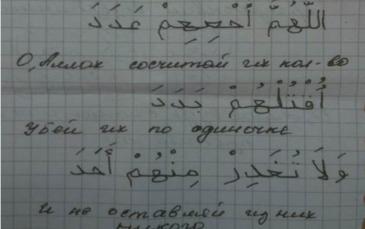 اللَّهُمَّ أَحْصِهِمْ عَدَدَ
О, Аллах сосчитай их кол-во
اُقْتُلْهُمْ بَدَدَ
Убей их по одиночке
وَلَا تُغَدِرْ مِنْهُمْ أَحَدَ
И не оставляй из них
никого